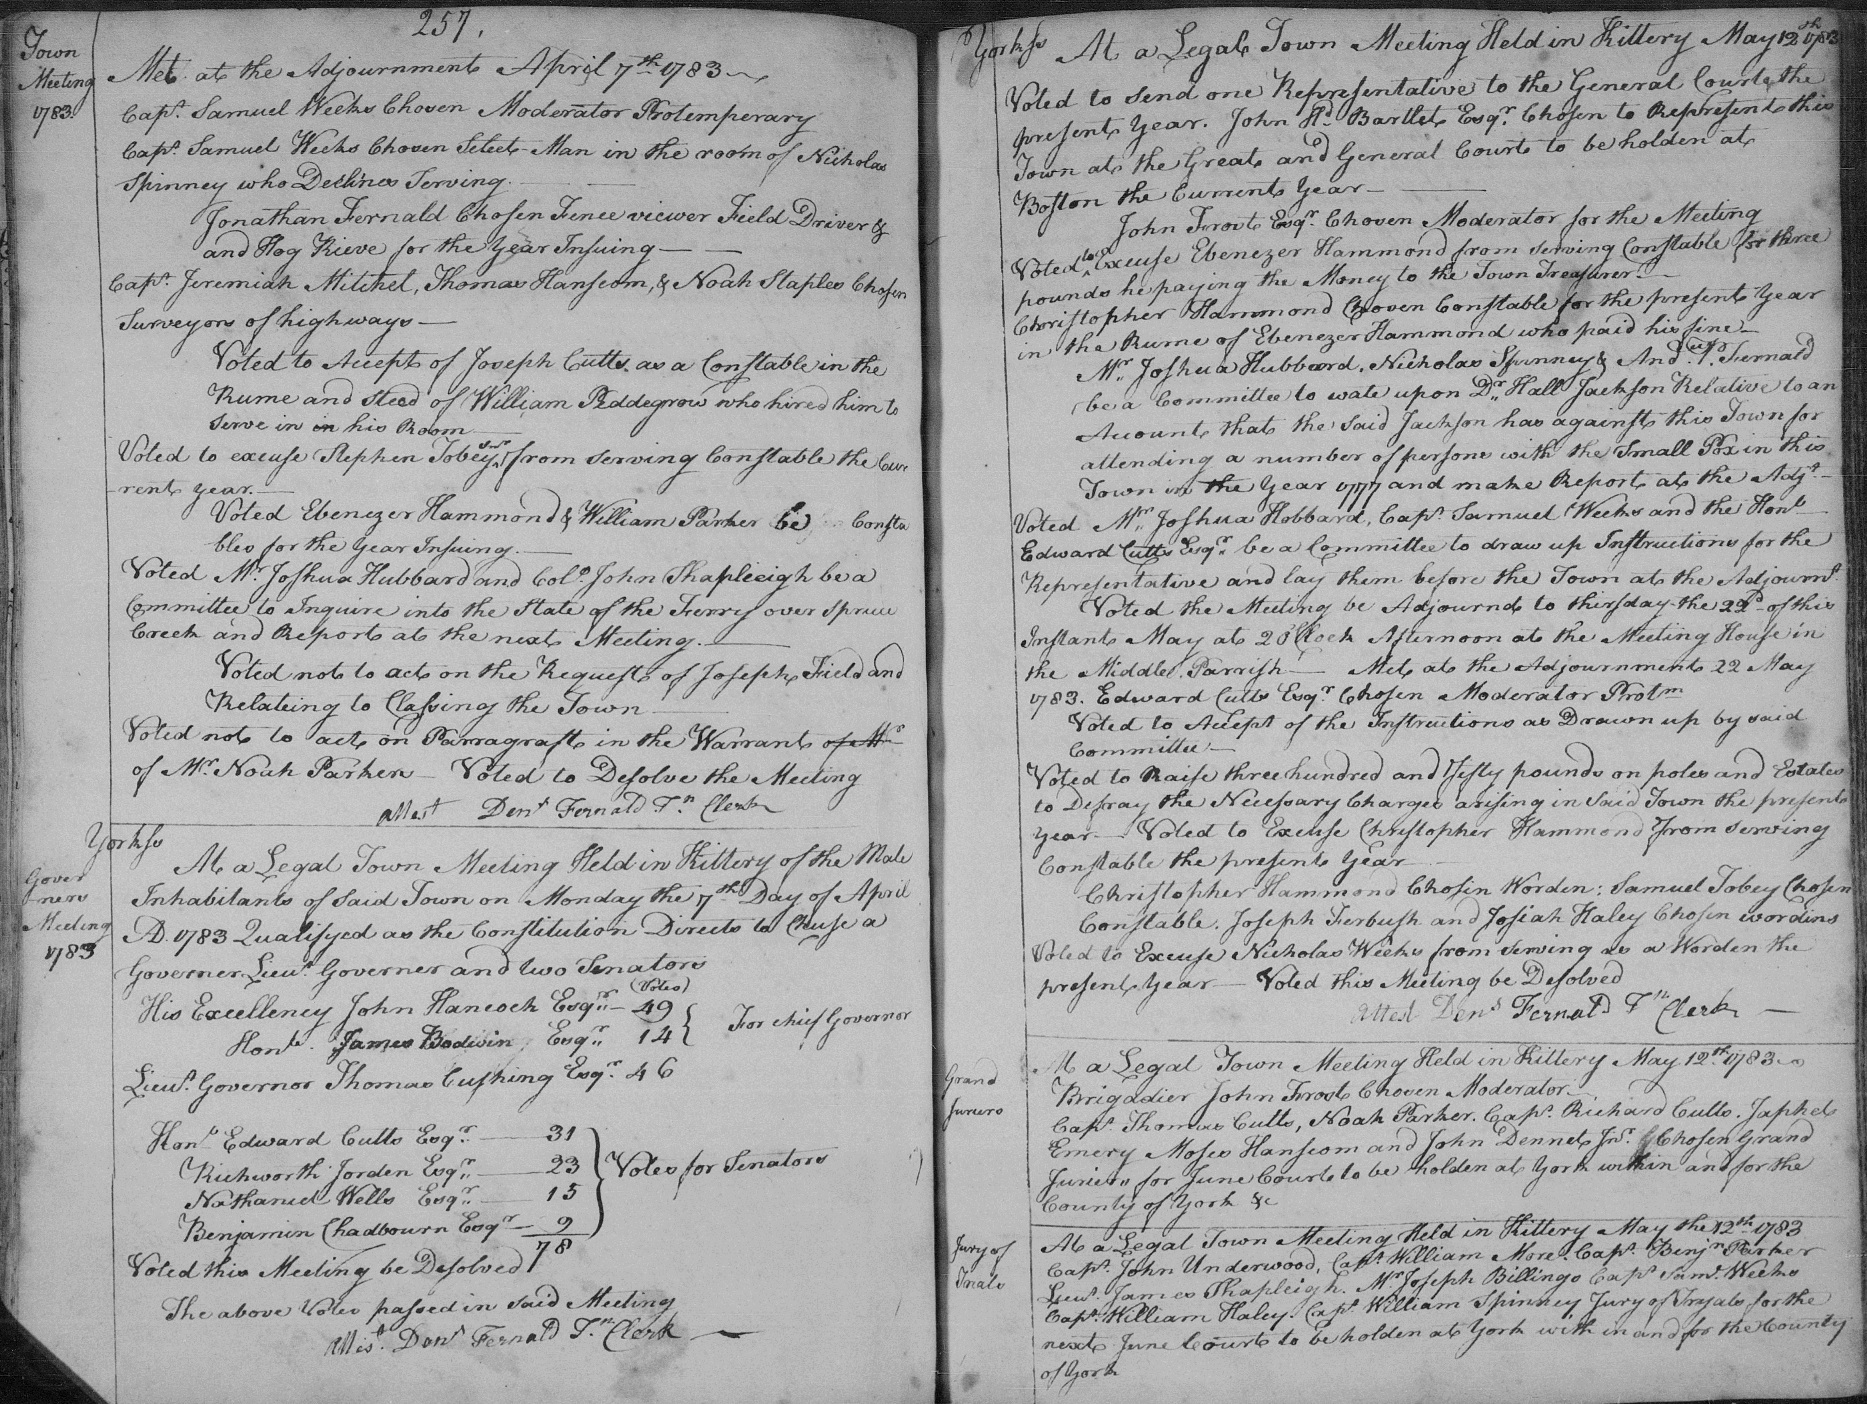 257.
Town
Meeting
1783.
Met at the Adjournment April 7th 1783
Capt. Samuel Weeks Chosen Moderator Protemperary
Capt. Samuel Weeks Chosen Select-Man in the room of Nicholas
Spinney who Declines Serving.
Jonathan Fernald Chosen Fence viewer Field Driver &
and Hog Rieve for the Year Insuing
Capt. Jeremiah Mitchel, Thomas Hanscom, & Noah Staples Chosen
Surveyors of highways
Voted to Accept of Joseph Cutts as a Constable in the
Rume and steed of William Peddegrow who hired him to
Serve in in his Room
Voted to excuse Stephen Tobey from serving Constable the Cur
rent year.
Voted Ebenezer Hammond & William Parker be Consta
bles for the Year Insuing.
Voted Mr. Joshua Hubbard and Colo. John Shapleigh be a
Committee to Inquire into the State of the Ferry over Spruce
Creek and Report at the next Meeting.
Voted not to act on the Request of Joseph Field and
Relateing to Classing the Town
Voted not to act on Parragraft in the Warrant of Mr
of Mr. Noah Parker Voted to Desolve the Meeting
attest Dens Fernald Tn. Clerk
Yorkss
Gover
ners
Meeting
1783
At a Legal Town Meeting Held in Kittery of the Male
Inhabitants of Said Town on Monday the 7th Day of April
AD. 1783 Qualifyed as the Constitution Directs to Chuse a
Governer Lieut. Governer and two Senators
(Votes)
His Excellency John Hancock Esqr. 49
Honle. James Bodwin Esqr. 14 } For chief Governor
Lieut. Governor Thomas Cushing Esqr. 46
Honle Edward Cutts Esqr. 31
Richworth Jorden Esqr. 23 } Votes for Senators
Nathaniel Wells Esqr. 15
Benjamin Chadbourn Esqr 9
78
Voted this Meeting be Desolved
The above Votes passed in said Meeting
Attest. Dens Fernald Tn. Clerk
Yorkss At a Legal Town Meeting Held in Kittery May 12th 1783
Voted to send one Representative to the General Court the
present Year. John Hd. Bartlet Esqr. Chosen to Represent this
Town at the Great and General Court to be holden at
Boston the Current Year
John Frost Esqr. Chosen Moderator for the Meeting
Voted to Excuse Ebenezer Hammond from serving Constable for three
pounds he paying the Money to the Town Treasurer.
Christopher Hammond Chosen Constable for the present Year
in the Rume of Ebenezer Hammond who paid his fine
Mr. Joshua Hubbard, Nicholas Spinney & And. P. Fernald
be a Committee to wate upon Dr. Hall Jackson Relative to an
Account that the said Jackson has against this Town for
attending a number of persons with the Small Pox in this
Town in the Year 1777 and make Report at the Adjt
Voted Mr. Joshua Hobbard, Capt. Samuel Weeks and the Honle
Edward Cutts Esqr. be a Committee to draw up Instructions for the
Representative and lay them before the Town at the Adjournt.
Voted the Meeting be Adjournd to thirsday the 22d of this
Instant May at 2 o'Clock Afternoon at the Meeting House in
the Middle Parrish Met at the Adjournment 22 May
1783. Edward Cutts Esqr. Chosen Moderator Protm
Voted to Accept of the Instructions as Drawn up by said
Committee
Voted to Raise three hundred and fifty pounds on poles and Estates
to Defray the Necessary Charges arising in Said Town the present
Year. Voted to Excuse Christopher Hammond from serving
Constable the present Year
Christopher Hammond Chosin Worden: Samuel Tobey Chosen
Constable. Joseph Furbush and Josiah Haley Chosen wordins
Voted to Excuse Nicholas Weeks from serving as a Worden the
present Year Voted this Meeting be Desolved
Attest Dens Fernald Tn Clerk
Grand
Jurers
At a Legal Town Meeting Held in Kittery May 12th 1783
Brigadier John Frost Chosen Moderator
Capt. Thomas Cutts, Noah Parker. Capt. Richard Cutts. Japhet
Emery Moses Hanscom and John Dennet Jnr. Chosen Grand
Juriers for June Court to be holden at York within and for the
County of York &c
Jury of
Trials
At a Legal Town Meeting Held in Kittery May the 12th 1783
Capt. John Underwood, Capt William More. Capt. Benjn Parker
Lieut. James Shapleigh. Mr Joseph Billings Capt Saml. Weeks
Capt. William Haley. Capt. William Spinney Jury of Tryals for the
next June Court to be holden at York with in and for the County
of York